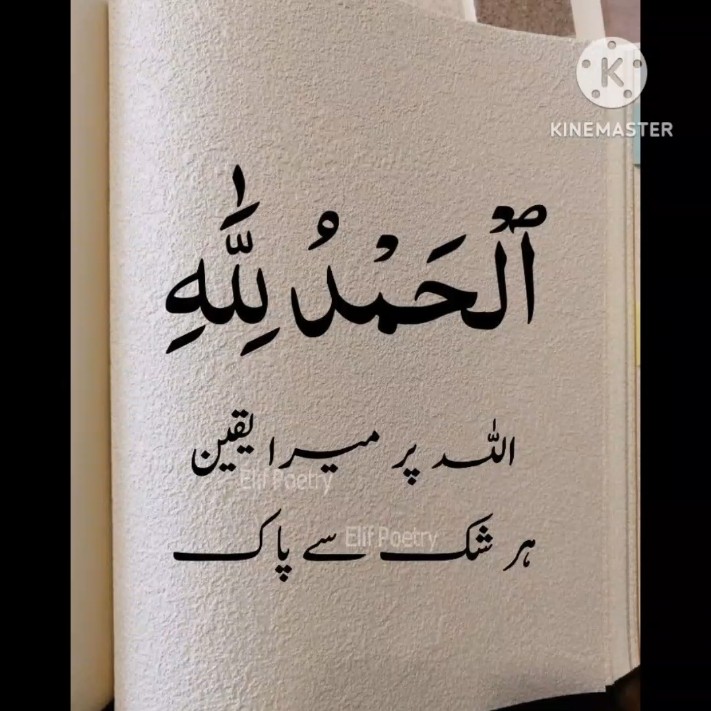 KINEMASTER
ٱلْحَمْدُ لِلَّٰهِ
اللہ پر میرا یقین
Elif Poetry
ہر شک سے پاک
Elif Poetry